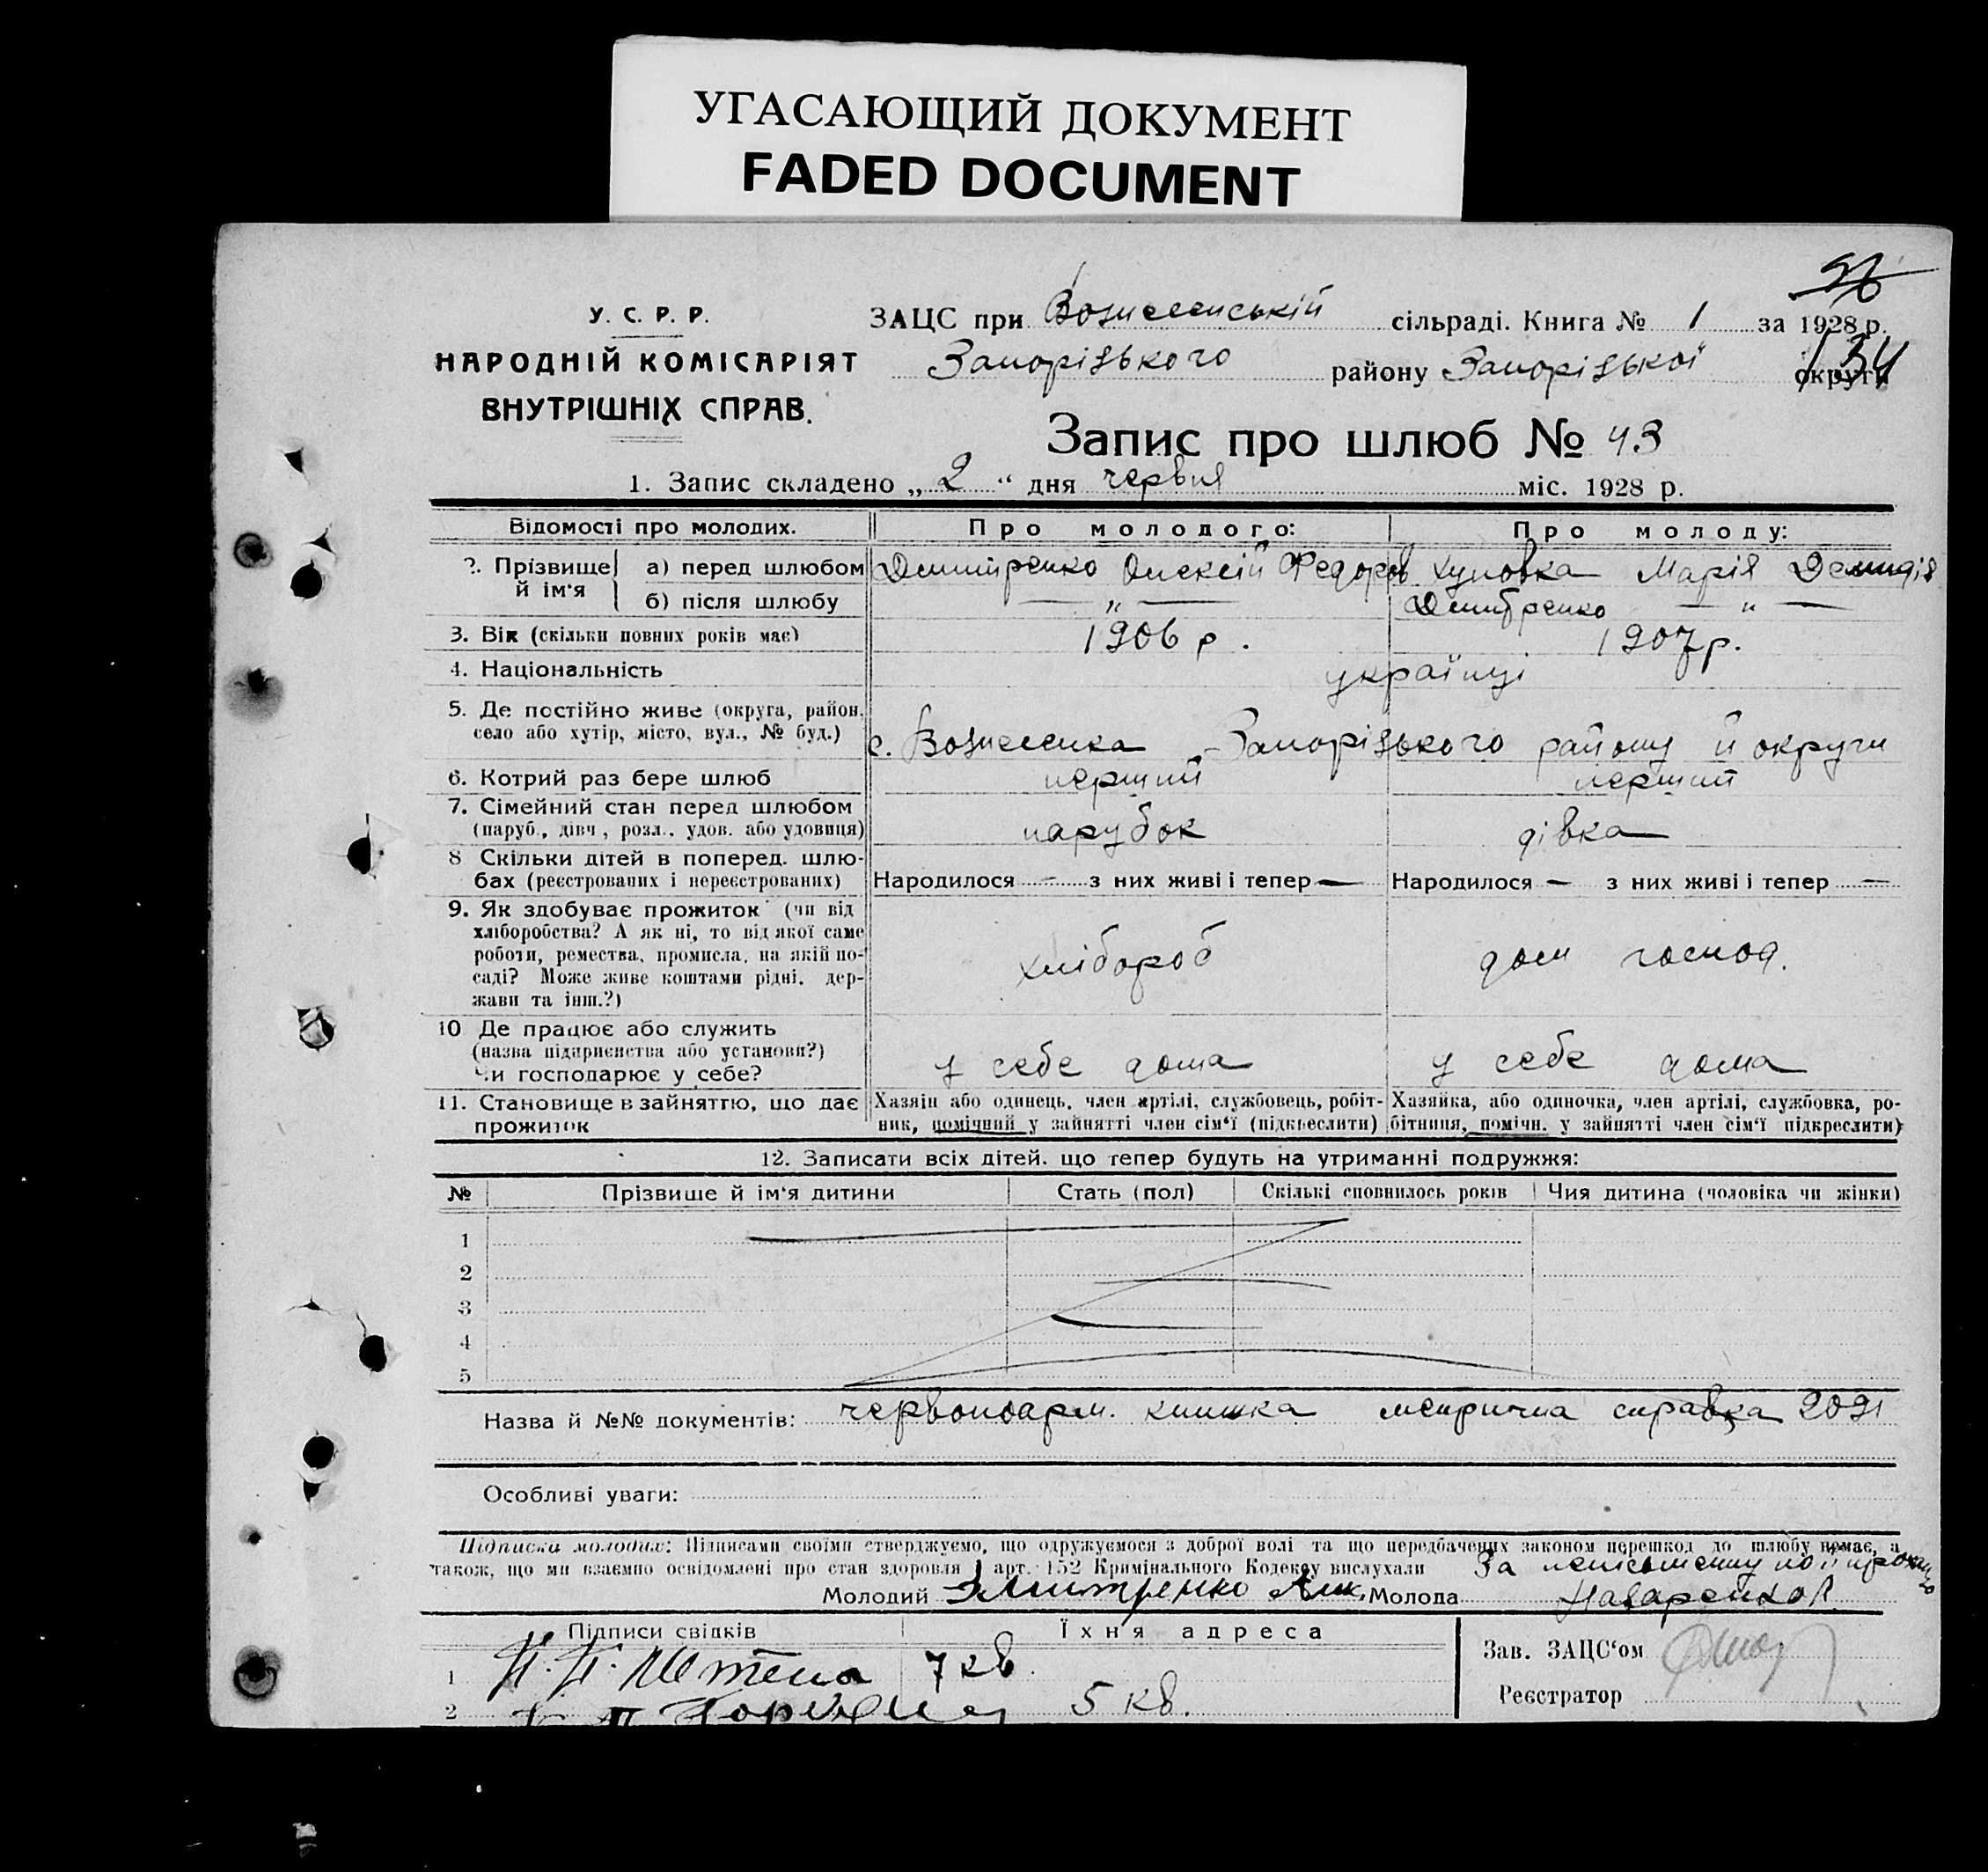 УГАСАЮЩИЙ ДОКУМЕНТ
FADED DOCUMENT
У. С. Р. Р.
НАРОДНІЙ КОМІСАРІЯТ
ВНУТРІШНІХ СПРАВ.
ЗАЦС при Вознесенській сільраді. Книга № 1 за 1928 р.
Запорізького району Запорізької округи
134
Запис про шлюб № 43
1. Запис складено „ 2 “ дня червня міс. 1928 р.
Відомості про молодих. Про молодого: Про молоду:
2. Прізвище й ім'я
а) перед шлюбом Дмитренко Олексій Федоров Марія
б) після шлюбу — " — Дмитренко — " —
3. Вік (скільки повних років має) 1906 р. 1907 р.
4. Національність українці
5. Де постійно живе (округа, район,
село або хутір, місто, вул., № буд.) с. Вознесенка Запорізького району й округи
6. Котрий раз бере шлюб перший перший
7. Сімейний стан перед шлюбом
(паруб., дівч., розл., удов. або удовиця) парубок дівка
8 Скільки дітей в поперед. шлю-
бах (реєстрованих і нереєстрованих) Народилося — з них живі і тепер — Народилося — з них живі і тепер —
9. Як здобуває прожиток (чи від
хліборобства? А як ні, то від якої саме
роботи, ремества, промисла, на якій по-
саді? Може живе коштами рідні, дер-
жави та інш.?) хлібороб дом господ.
10 Де працює або служить
(назва підприємства або установи?)
Чи господарює у себе? у себе дома у себе дома
11. Становище в зайняттю, що дає
прожиток
Хазяїн або одинець, член артілі, службовець, робіт-
ник, помічний у зайнятті член сім'ї (підкреслити)
Хазяйка, або одиночка, член артілі, службовка, ро-
бітниця, помічн. у зайнятті член сім'ї підкреслити)
12. Записати всіх дітей, що тепер будуть на утриманні подружжя:
№ Прізвище й ім'я дитини Стать (пол) Скількі сповнилось років Чия дитина (чоловіка чи жінки)
1
2
3
4
5
Назва й №№ документів: червоноарм. книжка метрична справка 2091
Особливі уваги:
Підписка молодих: Підписами своїми стверджуємо, що одружуємося з доброї волі та що передбачених законом перешкод до шлюбу немає, а
також, що ми взаємно освідомлені про стан здоровля і арт. 152 Кримінального Кодексу вислухали
За неписьменну по її проханню
Молодий Дмитренко Молода
Підписи свідків Їхня адреса
1 7 кв.
2 5 кв.
Зав. ЗАЦС'ом
Реєстратор